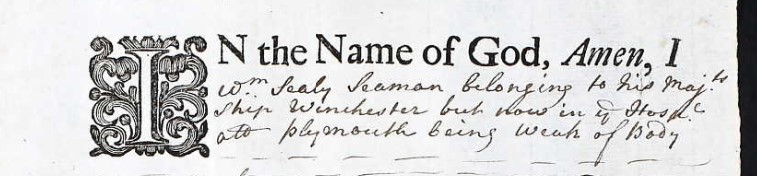 IN the Name of God, Amen, I
Wm Sealy Seaman belonging to his Majts
Ship Winchester but now in ye Hospl
att plymouth being weak of Body